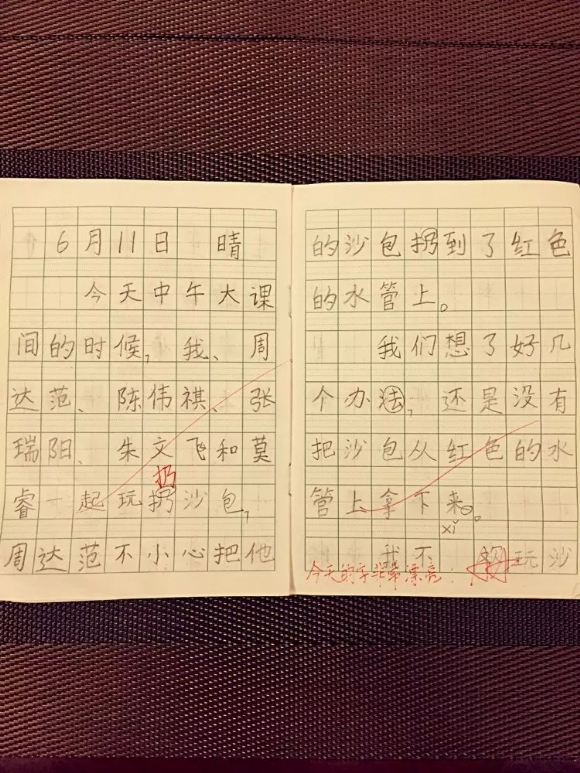 6月11日 晴
今天中午大课
间的时候,我、周
达范、陈伟祺、张
瑞阳、朱文飞和莫
扔
睿一起玩扔沙包,
周达范不小心把他
的沙包扔到了红色
的水管上。
我们想了好几
个办法,还是没有
把沙包从红色的水
管上拿下来。
xǐ
我不 玩沙
今天的字非常漂亮!